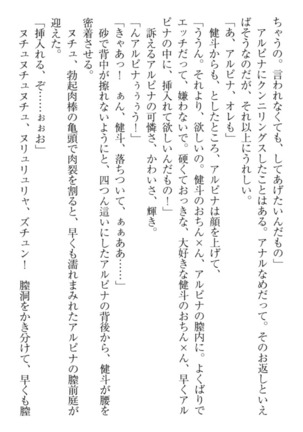 ちゃうの。言われなくても、してあげたいんだもの」
アルピナにクンニリングスしたことはある。アナルなめだって。そのお返しといえ
ばそうなのだが、それ以上にうれしい。
「あ、アルピナ、オレも」
健斗からも、としたところ、アルピナは顔を上げて、
「ううん。それより、欲しいの。健斗のおちん×ん、アルピナの膣内に。よくばりで
エッチだって、嫌わないで。硬くておっきな、大好きな健斗のおちん×ん、早くアル
ピナの中に、挿入れて欲しいんだもの！」
訴えるアルピナの可憐さ、かわいさ、輝き。
「んアルピナぅぅぅう！」
「きゃぁっ！　あん、健斗、落ちついて、ぁぁああ……」
砂で背中が擦れないようにと、四つん這いにしたアルピナの背後から、健斗が腰を
密着させる。
ヌチュ、勃起肉棒の亀頭で肉裂を割ると、早くも濡れまみれたアルピナの膣前庭が
迎えた。
「挿入れる、ぞ……ぉぉお」
ヌチュヌチュヌチュ、ヌリュリュリャ、ズチュン！　膣洞をかき分けて、早くも膣